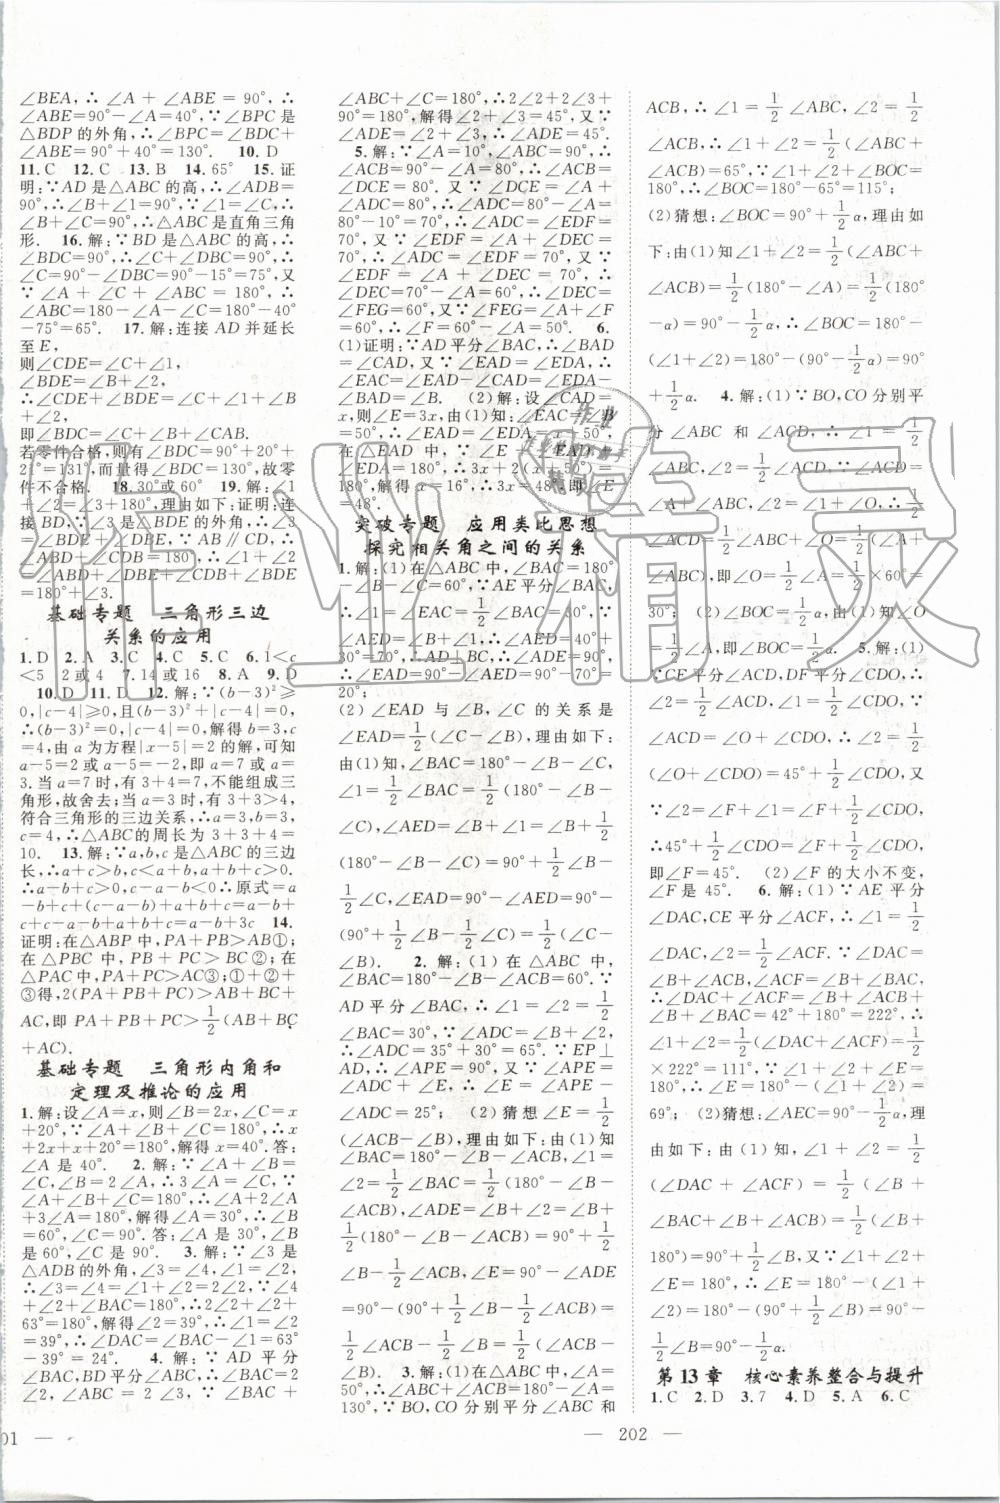 ∠BEA,∴∠A+∠ABE=90°,∴
∠ABE=90°-∠A=40°,∵∠BPC是
△BDP的外角,∴∠BPC=∠BDC+
∠ABE=90°+40°=130°. 10. D
11. C 12. C 13. B 14. 65° 15. 证
明:∵AD是△ABC的高,∴∠ADB=
90°,∴∠B+∠1=90°,∵∠1=∠C,∴
∠B+∠C=90°,∴△ABC是直角三角
形. 16. 解:∵BD是△ABC的高,∴
∠BDC=90°,∴∠C+∠DBC=90°,∴
∠C=90°-∠DBC=90°-15°=75°,又
∵∠A+∠C+∠ABC=180°,∴
∠ABC=180-∠A-∠C=180°-40°
-75°=65°. 17. 解:连接AD并延长
至E,
则∠CDE=∠C+∠1,
∠BDE=∠B+∠2,
∴∠CDE+∠BDE=∠C+∠1+∠B
+∠2,
即∠BDC=∠C+∠B+∠CAB.
若零件合格,则∠BDC=90°+20°+
21°=131°,而量得∠BDC=130°,故零
件不合格. 18. 30°或60° 19. 解:∠1
+∠2=∠3+180°,理由如下:证明:连
接BD,∵∠3是∠BDE的外角,∴∠3
=∠DBE+∠BDE,∵AB∥CD,∴
∠ABD+∠CDB=180°,∴∠1+∠2
=∠ABD+∠DBE+∠BDE+∠CDB
=180°+∠3.
基础专题 三角形三边
关系的应用
1. D 2. A 3. C 4. C 5. C 6. 1<c
<5 2或4 7. 14或16 8. A 9. D
10. D 11. D 12. 解:∵(b-3)²≥
0,|c-4|≥0,且(b-3)²+|c-4|=0,
∴(b-3)²=0,|c-4|=0,解得b=3,c
=4,由a为方程|x-5|=2的解,可知
a-5=2或a-5=-2,即a=7或a=
3. 当a=7时,有3+4=7,不能组成三
角形,故舍去;当a=3时,有3+3>4,
符合三角形的三边关系,∴a=3,b=3,
c=4,∴△ABC的周长为3+3+4=
10. 13. 解:∵a,b,c是△ABC的三边
长,∴a+c>b,c<a+b,a+b+c>0,
∴a-b+c>0,c-a-b<0∴原式=a
-b+c+(c-a-b)+a+b+c=a-b
+c+c-a-b+a+b+c=a-b+3c 14.
证明:在△ABP中,PA+PB>AB①;
在△PBC中,PB+PC>BC②;在
△PAC中,PA+PC>AC③;①+②+
③得,2(PA+PB+PC)>AB+BC+
AC,即PA+PB+PC>1/2(AB+BC
+AC).
基础专题 三角形内角和
定理及推论的应用
1. 解:设∠A=x,则∠B=2x,∠C=x
+20°,∵∠A+∠B+∠C=180°,∴
x+2x+x+20°=180°,解得x=40°. 答:
∠A是40°. 2. 解:∵∠A+∠B=
∠C,∠B=2∠A,∴3∠A=∠C,∵
∠A+∠B+∠C=180°,∴∠A+2∠A
+3∠A=180°,解得∠A=30°,∴∠B
=60°,∠C=90°. 答:∠A是30°,∠B
是60°,∠C是90°. 3. 解:∵∠3是
△ADB的外角,∠3=∠4,∠1=∠2,
∴∠3=∠4=∠1+∠2=2∠2,∵∠2
+∠4+∠BAC=180°,∴2∠2+∠2+
63°=180°,解得∠2=39°,∴∠1=∠2
=39°,∴∠DAC=∠BAC-∠1=63°
-39°=24°. 4. 解:∵AD平分
∠BAC,BD平分∠ABC,∴∠BAC=2
∠2,∠ABC=2∠3,又∵∠BAC+
∠ABC+∠C=180°,∴2∠2+2∠3+
90°=180°,解得∠2+∠3=45°,又∵
∠ADE=∠2+∠3,∴∠ADE=45°.
5. 解:∵∠A=10°,∠ABC=90°,∴
∠ACB=90°-∠A=80°,∴∠ACB=
∠DCE=80°. 又∵∠DCE=∠A+
∠ADC=80°,∴∠ADC=80°-∠A=
80°-10°=70°,∴∠ADC=∠EDF=
70°,又∵∠EDF=∠A+∠DEC=70°,
∴∠EDF=∠A+∠DEC=70°,∴
∠DEC=70°-∠A=60°,∴∠DEC=
∠FEG=60°,又∵∠FEG=∠A+∠F
=60°,∴∠F=60°-∠A=50°. 6.
(1)证明:∵AD平分∠BAC,∴∠BAD
=∠CAD,又∵∠EAD=∠EDA,∴
∠EAC=∠EAD-∠CAD=∠EDA-
∠BAD=∠B. (2)解:设∠CAD=
x,则∠E=3x,由(1)知:∠EAC=∠B
=50°,∴∠EAD=∠EDA=x+50°,
在△EAD中,∵∠E+∠EAD+
∠EDA=180°,∴3x+2(x+50°)=
180°,解得x=16°,∴3x=48°,即∠E
=48°.
突破专题 应用类比思想
探究相关角之间的关系
1. 解:(1)在△ABC中,∠BAC=180°
-∠B-∠C=60°,∵AE平分∠BAC,
∴∠1=∠EAC=1/2∠BAC=30°,∴
∠AED=∠B+∠1=40°+
30°=70°,∴∠EAD=90°-∠AED=
20°;
(2)∠EAD与∠B,∠C的关系是
∠EAD=1/2(∠C-∠B),理由如下:
由(1)知:∠BAC=180°-∠B-∠C,
∠1=1/2∠BAC=1/2(180°-∠B-
∠C),∠AED=∠B+∠1=∠B+1/2
(180°-∠B-∠C)=90°+1/2∠B-
1/2∠C,∴∠EAD=90°-∠AED=90°-
(90°+1/2∠B-1/2∠C)=1/2(∠C-
∠B). 2. 解:(1)在△ABC中,
∠BAC=180°-∠B-∠ACB=60°.∵
AD平分∠BAC,∴∠1=∠2=1/2
∠BAC=30°,∵∠ADC=∠B+∠2,
∴∠ADC=35°+30°=65°.∵EP⊥
AD,∴∠APE=90°,∴∠E=∠APE-
∠ADC=25°; (2)猜想∠E=1/2
(∠ACB-∠B),理由如下:由(1)知:
∠1=∠2=1/2∠BAC=1/2(180°-∠B-
∠ACB),∠ADE=∠B+∠2=∠B+
1/2(180°-∠B-∠ACB)=90°+1/2
∠B-1/2∠ACB,∴∠E=90°-∠ADE
=90°-(90°+1/2∠B-1/2∠ACB)=
1/2∠ACB-1/2∠B=1/2(∠ACB-
∠B). 3. 解:(1)∠BOC=115°;
∵BO,CO分别平分∠ABC和
ACB,∴∠1=1/2∠ABC,∠2=1/2
∠ACB,∴∠1+∠2=1/2(∠ABC+
∠ACB)=65°,又∵∠1+∠2+∠BOC=
180°,∴∠BOC=180°-65°=115°;
(2)猜想:∠BOC=90°+1/2α,理由如
下:由(1)知∠1+∠2=1/2(∠ABC+
∠ACB)=1/2(180°-∠A)=1/2(180°
-α)=90°-1/2α,∴∠BOC=180°-
(∠1+∠2)=180°-(90°-1/2α)=90°
+1/2α. 4. 解:(1)∵BO,CO分别平
分∠ABC和∠ACD,∴∠1=1/2
∠ABC,∠2=1/2∠ACD,又∵∠ACD=
∠A+∠ABC,∠2=∠1+∠O,∴∠O=
1/2∠ABC,即∠O=1/2∠A=1/2×60°=
30°; (2)∠BOC=1/2α,由(1)知∠O
=1/2∠A,∴∠BOC=1/2α. 5. 解:(1)
∵CE平分∠ACD,DF平分∠CDO,∴
∠2=1/2∠ACD,∠1=1/2∠CDO,∵
∠ACD=∠O+∠CDO,∴∠2=1/2
(∠O+∠CDO)=45°+1/2∠CDO,又
∵∠2=∠F+∠1=∠F+1/2∠CDO,
∴45°+1/2∠CDO=∠F+1/2∠CDO,
即∠F=45°. (2)∠F的大小不变,
∠F是45°. 6. 解:(1)∵AE平分
∠DAC,CE平分∠ACF,∴∠1=1/2
∠DAC,∠2=1/2∠ACF,∵∠DAC=
∠B+∠ACB,∠ACF=∠B+∠BAC,
∴∠DAC+∠ACF=∠B+∠ACB+
∠B+∠BAC=42°+180°=222°,∴
∠1+∠2=1/2(∠DAC+∠ACF)=1/2
×222°=111°,∴∠E=180°-(∠1+∠2)=
69°; (2)猜想:∠AEC=90°-1/2α,理
由如下:由(1)知,∠1+∠2=1/2
(∠DAC+∠ACF)=1/2(∠B+
∠BAC+∠B+∠ACB)=1/2(∠B+
180°)=90°+1/2∠B,又∵∠1+∠2+
∠E=180°,∴∠E=180°-(∠1+
∠2)=180°-(90°+1/2∠B)=90°-
1/2∠B=90°-1/2α.
第13章 核心素养整合与提升
1. C 2. D 3. 7 4. D 5. A 6. C
01 —
— 202 —
作业精灵